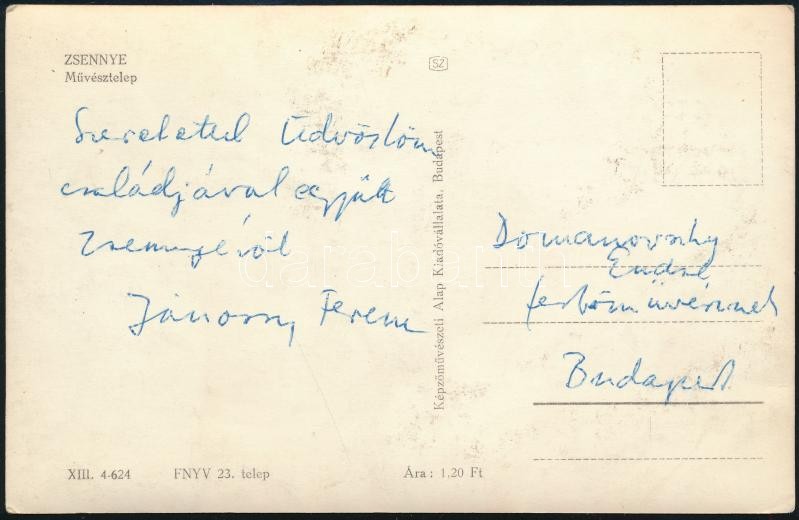 ZSENNYE
Művésztelep
SZ
Szeretettel üdvözlöm
családjával együtt
Zsennyéről
Jánossy Ferenc
Képzőművészeti Alap Kiadóvállalata, Budapest
Domanovszky
Endre
festőművésznek
Budapest
darabanth
XIII. 4-624 FNYV 23. telep Ára: 1,20 Ft